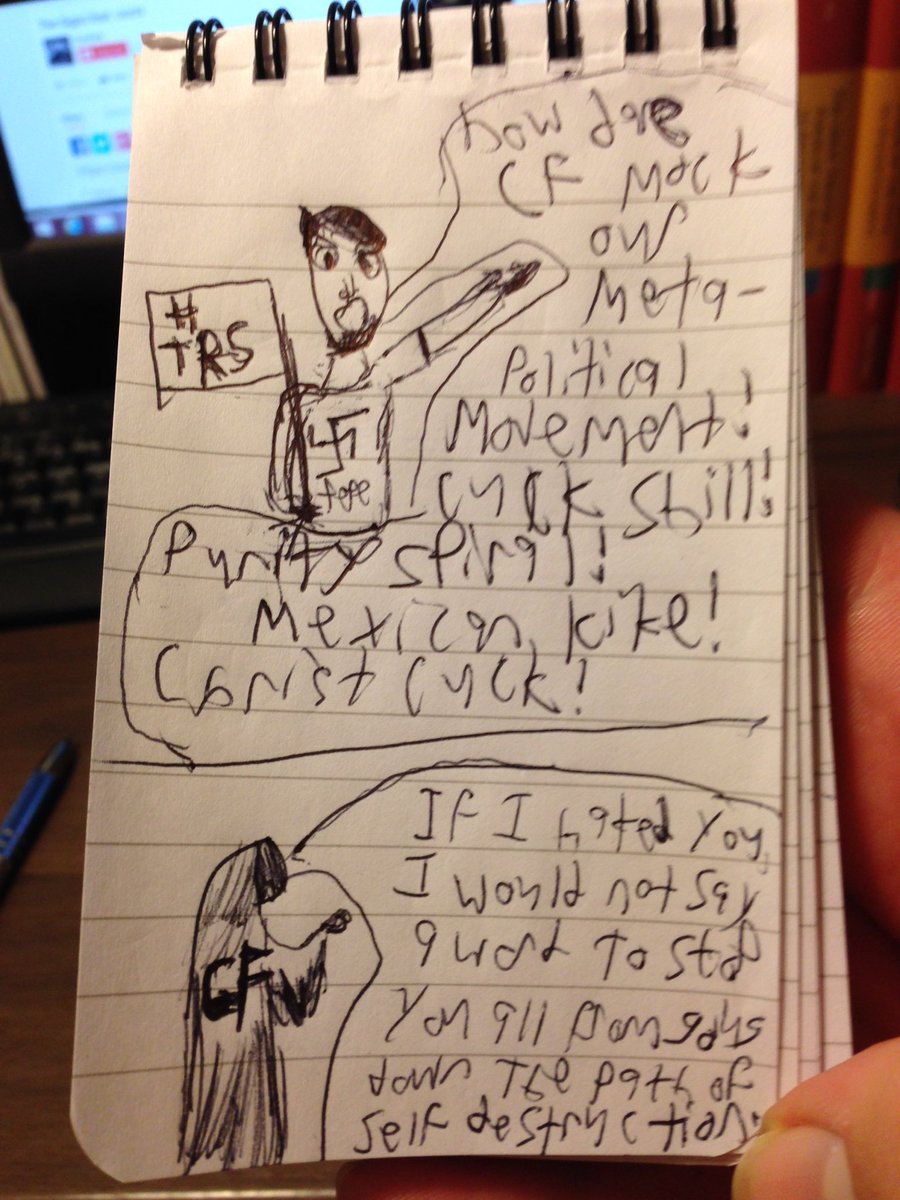 How dare
CF Mock
our
Meta-
Political
Movement!
cuck Still!
Purity spiral!
Mexican kike!
Christ cuck!
#
TRS
卐
CF
If I hated you
I would not say
a word to stop
you all
down the path of
self destruction.